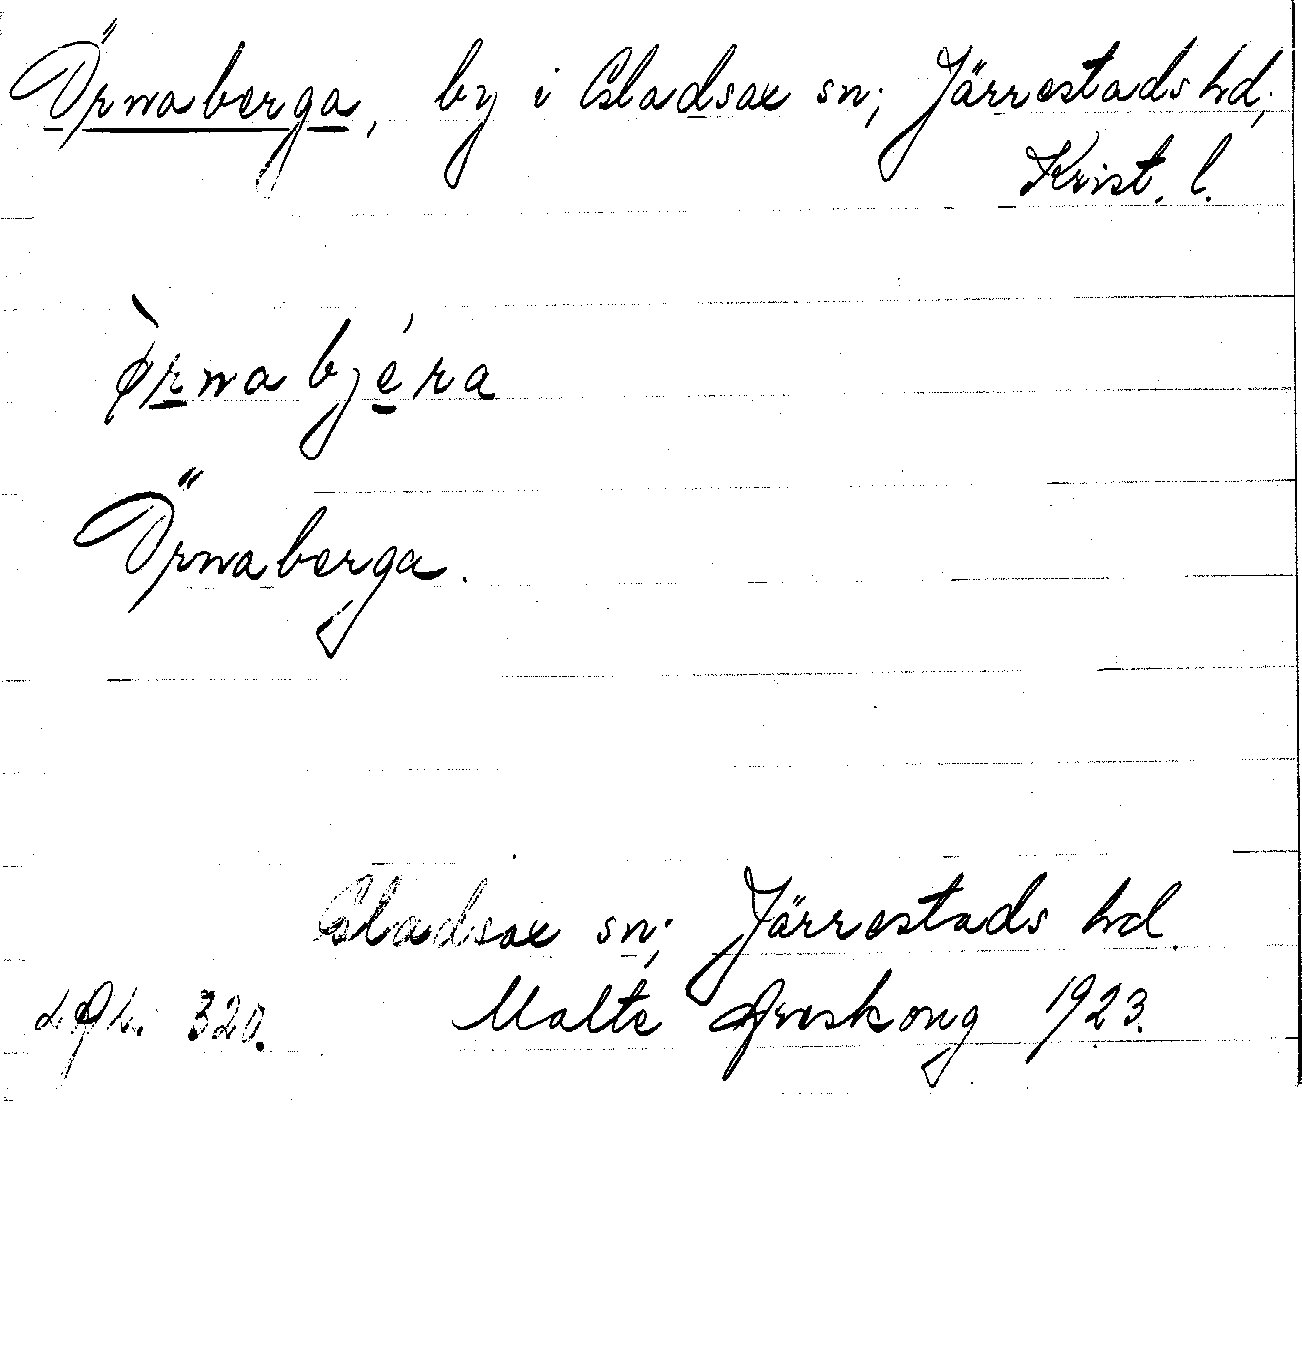 Örnaberga, by i Gladsax sn; Järrestads hd;
Krist. l.
ø̀rnabjéra
Örnaberga.
Gladsax sn; Järrestads hd.
320. Malte Areskoug 1923.